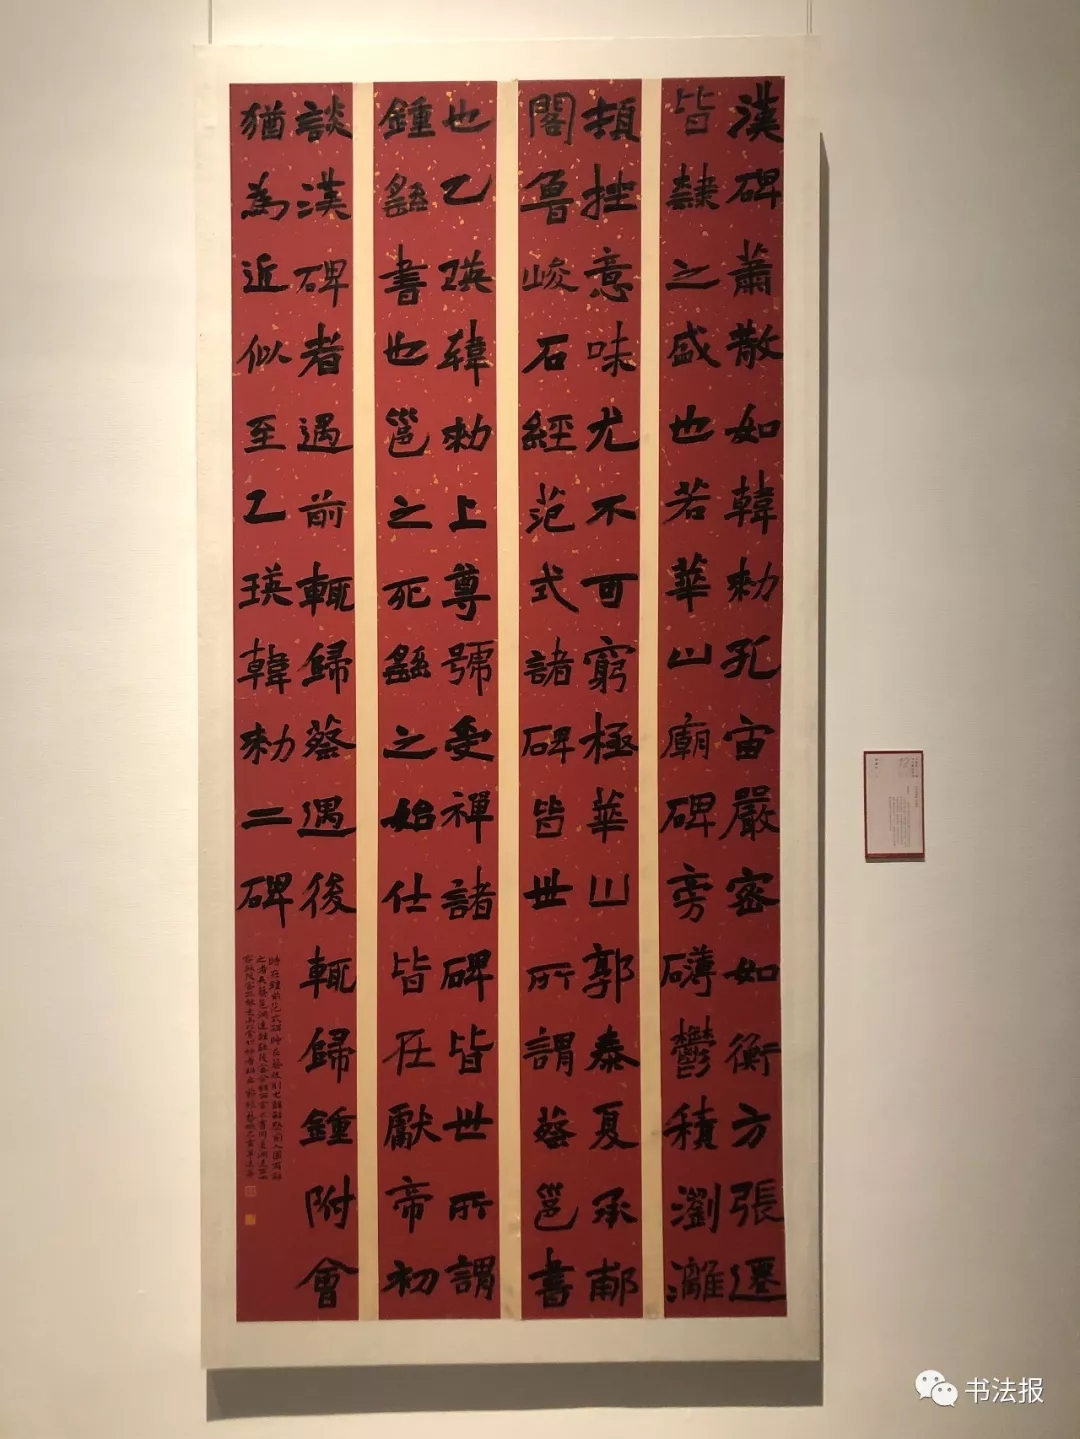 漢碑蕭散如韓勑孔宙嚴密如衡方張遷
皆隸之盛也若華山廟碑旁礴鬱積瀏灕
頓挫意味尤不可窮極華山郭泰夏承郙
閣魯峻石經范式諸碑皆世所謂蔡邕書
也乙瑛韓勑上尊號受禪諸碑皆世所謂
鍾繇書也邕之死繇之始仕皆在獻帝初
談漢碑者遇前輒歸蔡遇後輒歸鍾附會
猶為近似至乙瑛韓勑二碑
书法报